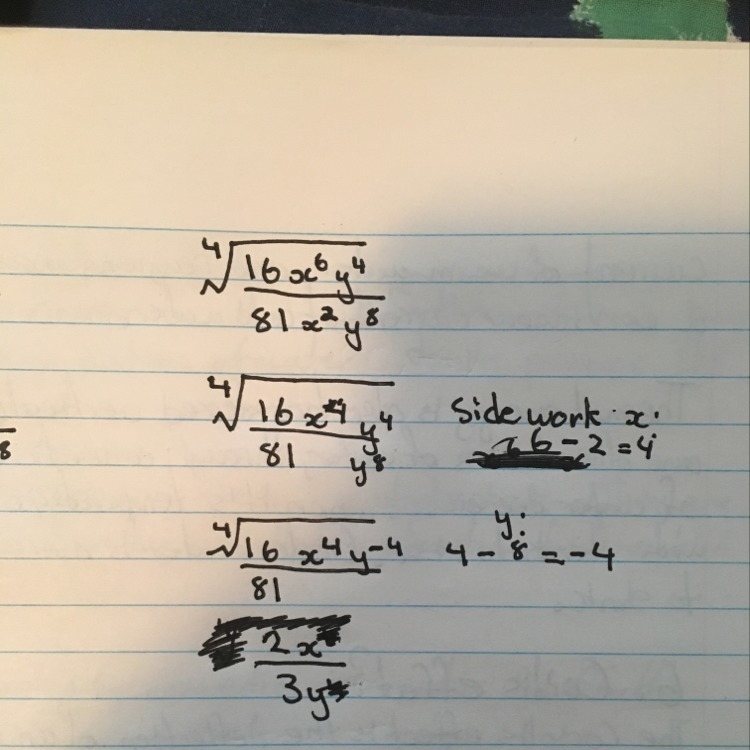 ⁴√(16x⁶y⁴ / 81x²y⁸)
⁴√(16x⁴y⁴ / 81 y⁸) Side work x:
6-2=4
⁴√(16x⁴y⁻⁴ / 81) y:
4-8=-4
2x / 3y
8